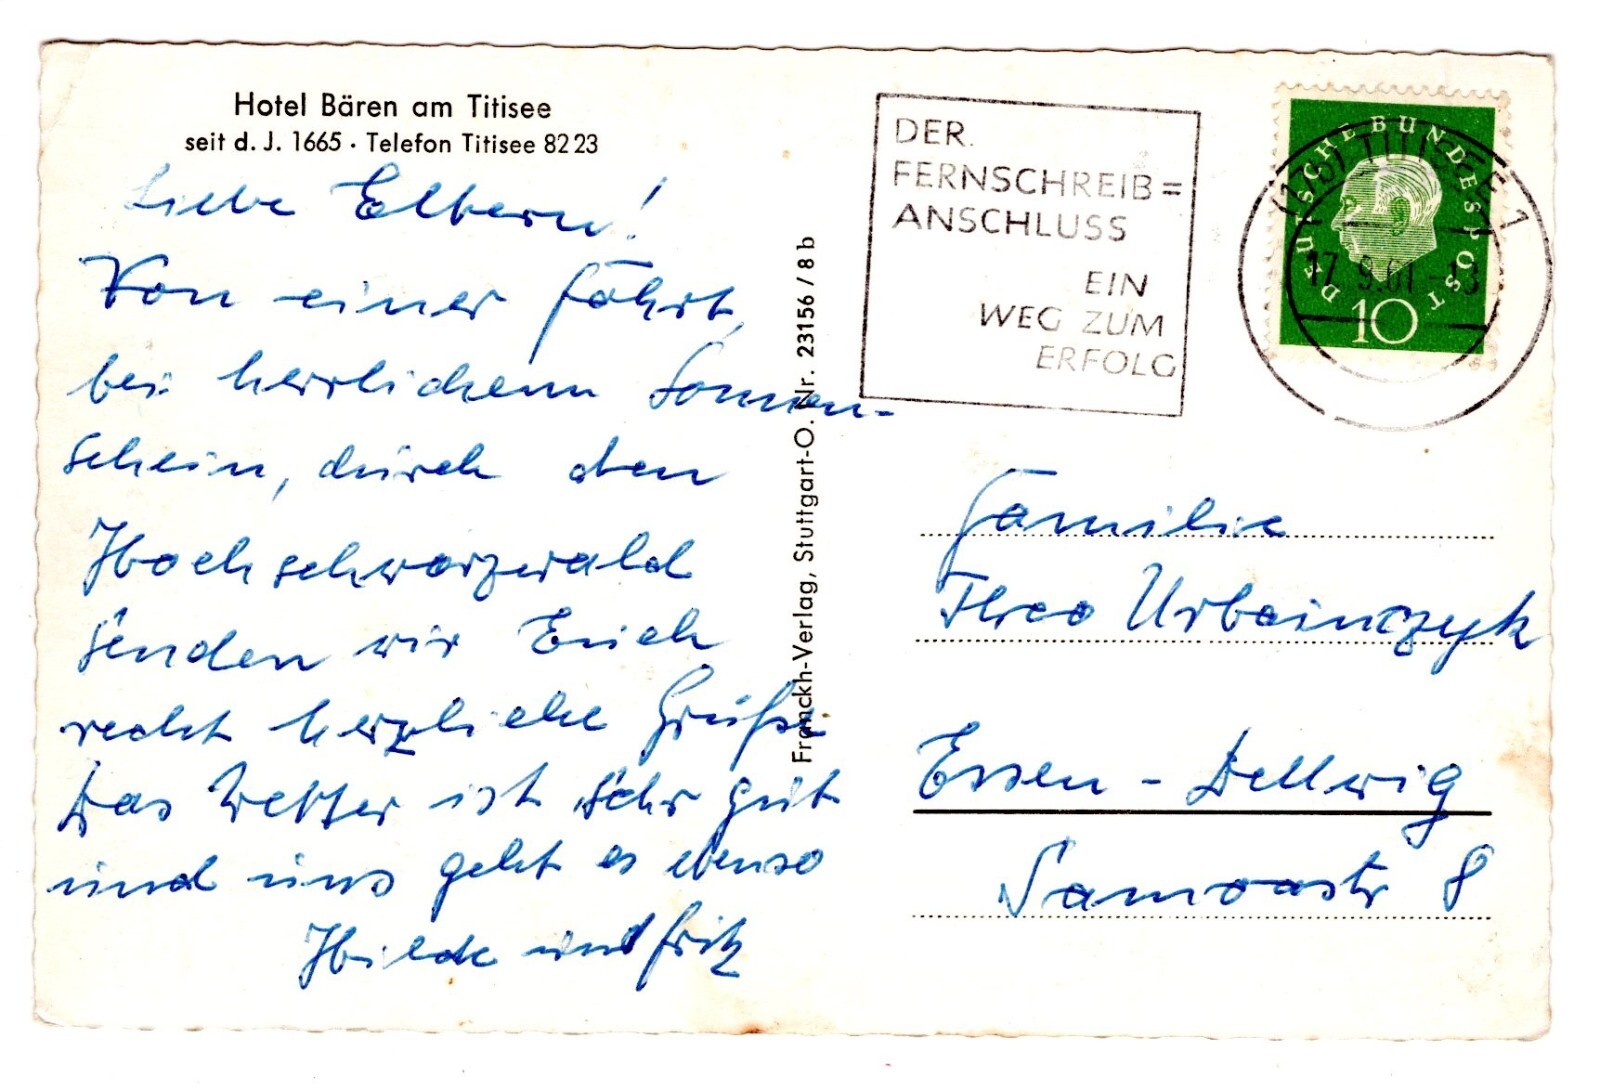 Hotel Bären am Titisee
seit d. J. 1665 · Telefon Titisee 82 23
Liebe Eltern!
Von einer Fahrt,
bei herrlichem Sonnen-
schein, durch den
Hochschwarzwald
senden wir Euch
recht herzliche Grüße
Das Wetter ist sehr gut
und uns geht es ebenso
Hilde und Fritz
Franckh-Verlag, Stuttgart-O. Nr. 23156 / 8 b
DER
FERNSCHREIB=
ANSCHLUSS
EIN
WEG ZUM
ERFOLG
DEUTSCHE BUNDESPOST
10
TITISEE 1
17.9.61-13
Familie
Theo Urbainczyk
Essen - Dellwig
Samoastr 8